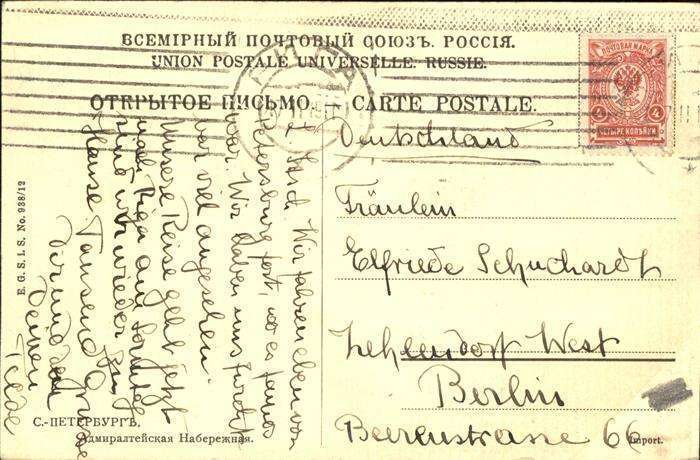 ВСЕМІРНЫЙ ПОЧТОВЫЙ СОЮЗЪ. РОССІЯ.
UNION POSTALE UNIVERSELLE. RUSSIE.
ОТКРЫТОЕ ПИСЬМО. — CARTE POSTALE.
ПОЧТОВАЯ МАРКА
4 4
ЧЕТЫРЕ КОПѢЙКИ
РИГА
Deutschland
Fräulein
Elfriede Schuchardt
Zehlendorf West
Berlin
Beerenstrasse 66
Wir fahren eben von
Petersburg fort, wo es famos
war. Wir haben uns
viel angesehen.
Unsere Reise geht jetzt
Riga
sind wir wieder
Hause Tausend Grüsse
Dir und
Deinen
E. G. S. I. S. No. 938/12
С.-ПЕТЕРБУРГЪ.
Адмиралтейская Набережная.
Import.